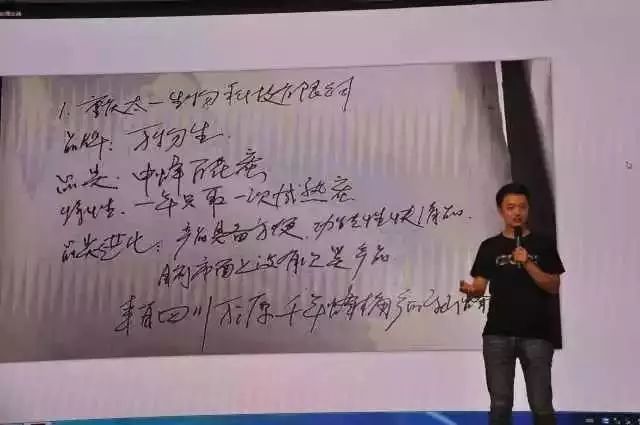 1. 重庆太一生物科技有限公司
品牌: 万物生.
品类: 中蜂百花蜜
特性. 一年只取一次成熟蜜
品类进化: 产品具备方便、功能性快消品.
目前市面上没有这类产品.
来自四川 千年蜂